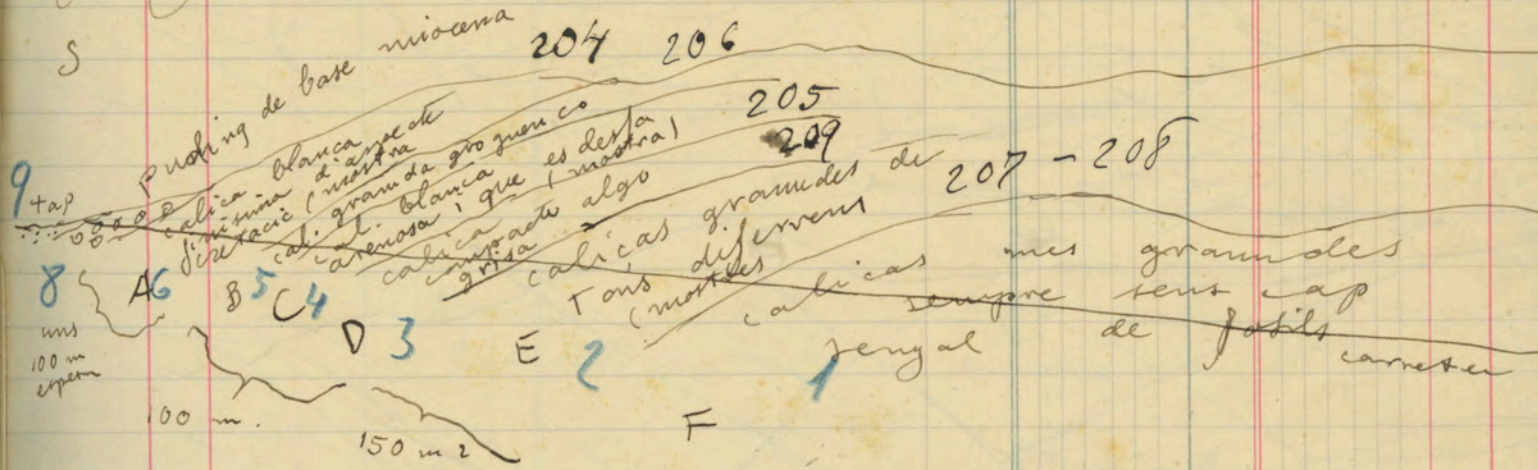 S
puding de base miocena
204 206
205
209
207 - 208
9
tap
calica blanca
finisima d'aspecte
cretacic (mostra
cal. granuda groguenca
cal. blanca
arenosa i que es desfa
(mostra)
calica
compacte algo
grisa
calicas granudes de
tons diferens
(mostres
calicas mes granudes
sempre sens cap
senyal de fosils
carreter
8 A6 B5 C4
D 3
E 2
1
F
uns
100 m
espesor
100 m.
150 m 2